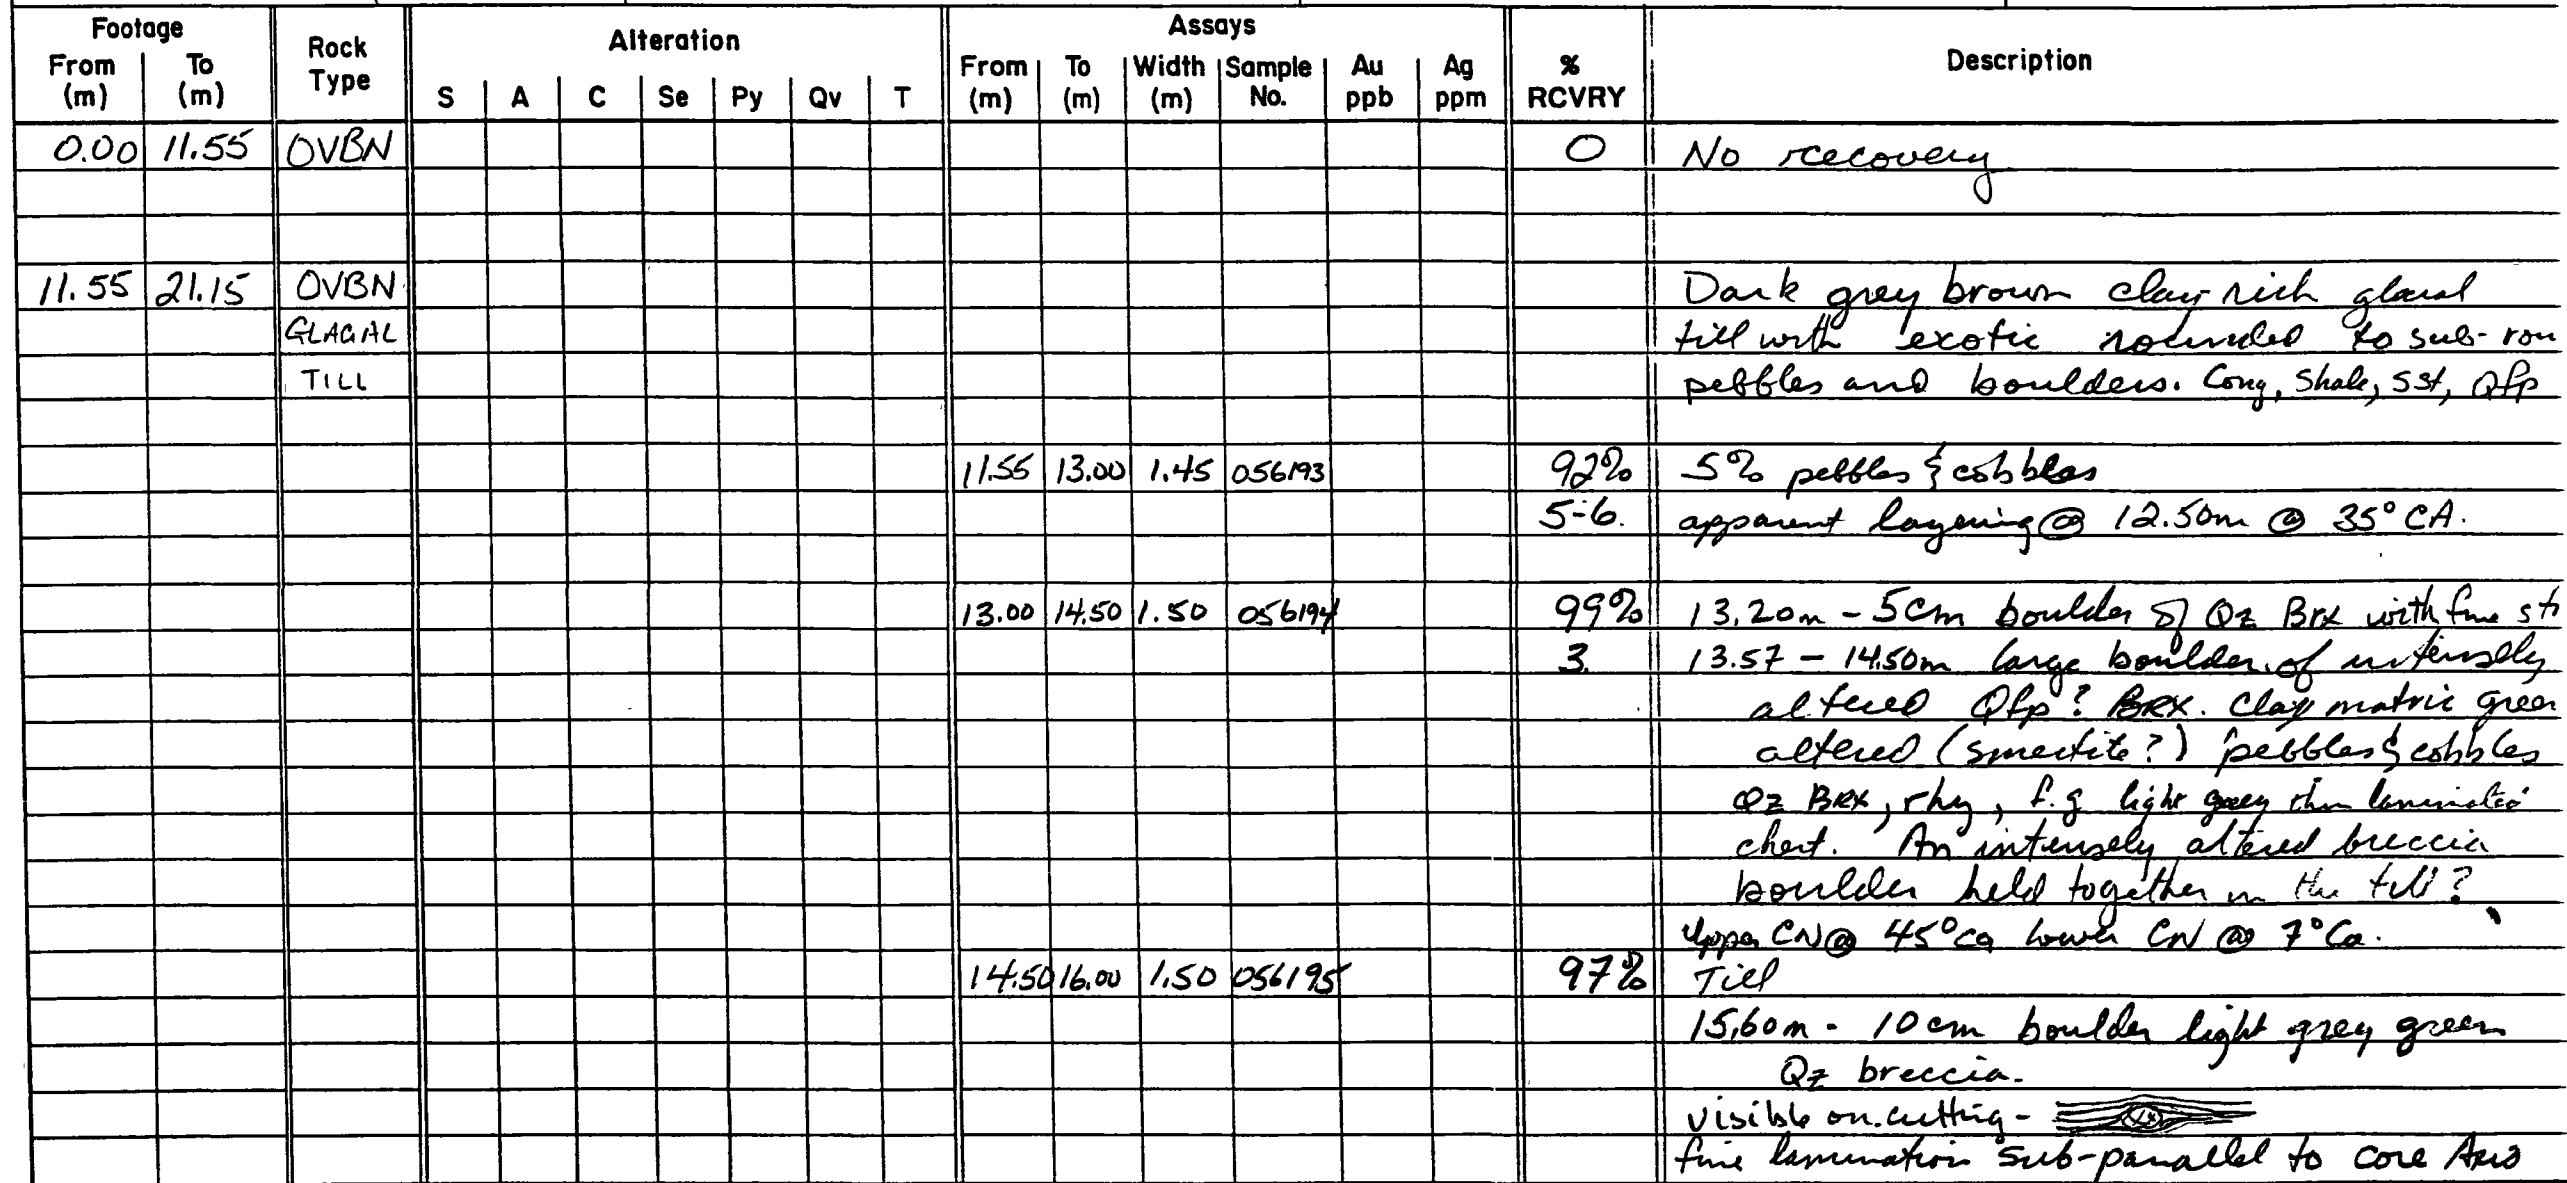 Footage Rock Type Alteration Assays % RCVRY Description
From (m) To (m) S A C Se Py Qv T From (m) To (m) Width (m) Sample No. Au ppb Ag ppm
0.00 11.55 OVBN 0 No rcecovery
11.55 21.15 OVBN Dark grey brown clay rich glacial
GLAGAL till with exotic rounded to sub-rou
TILL pebbles and boulders. Cong, Shale, sst, Qfp
11.55 13.00 1.45 056193 92% 5% pebbles & cobbles
5-6. apparent layering @ 12.50m @ 35° CA.
13.00 14.50 1.50 056194 99% 13.20m - 5cm boulder of Qz Brx with fine
3. 13.57 - 14.50m large boulder of intensely
altered Qfp? BRX. Clay matrix green
altered (smectite?) pebbles & cobbles
Qz BRX, rhy, f.g light grey thin laminated
chert. An intensely altered breccia
boulder held together in the till?
Upper CN @ 45° ca lower CN @ 7° Ca.
14.50 16.00 1.50 056195 97% Till
15.60m - 10cm boulder light grey green
Qz breccia.
visible on cutting -
fine lamination sub-parallel to core Axis